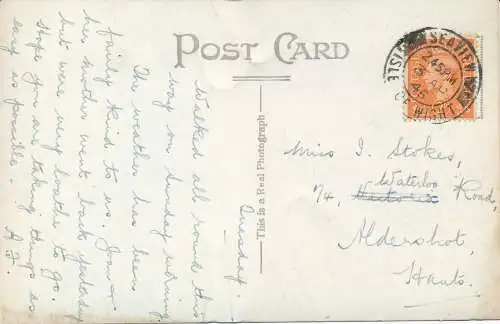 POST CARD
This is a Real Photograph
SEAVIEW
ISLE OF WIGHT
2 45 PM
45
Tuesday.
Walked all round this
way on Sunday morning.
The weather has been
fairly kind to us. Joan &
her mother went back yesterday
but were very loathe to go.
Hope you are taking things as
easy as possible.
Miss I. Stokes,
74, Waterloo Road,
Aldershot,
Hants.